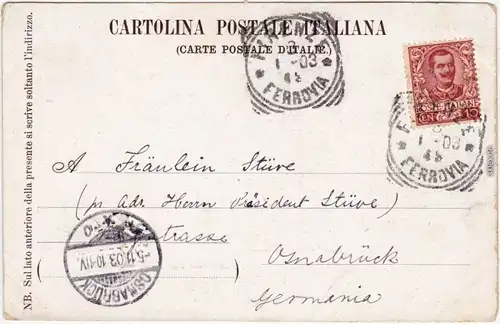 CARTOLINA POSTALE ITALIANA
(CARTE POSTALE D'ITALIE)
NB. Sul lato anteriore della presente si scrive soltanto l'indirizzo.
-03
FERROVIA
10
-03
FERROVIA
A Fräulein Stüve
(in adr. Herrn Präsident Stüve)
strasse
Osnabrück
Germania
OSNABRÜCK
-5.11.03.10-11V.